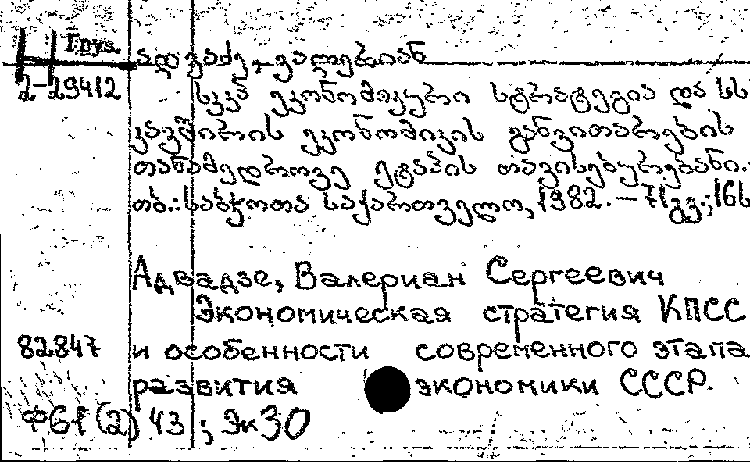 Груз.
ადვაძე, ვალერიან
2-29412
სკკპ ეკონომიკური სტრატეგია და სს
კავშირის ეკონომიკის განვითარების
თანამედროვე ეტაპის თავისებურებანი.
თბ.: საბჭოთა საქართველო, 1982. — 71 გვ.; 16ს
Адвадзе, Валериан Сергеевич
Экономическая стратегия КПСС
82847 и особенности современного этапа
развития экономики СССР.
Ф61(2) 43 ; Эк30